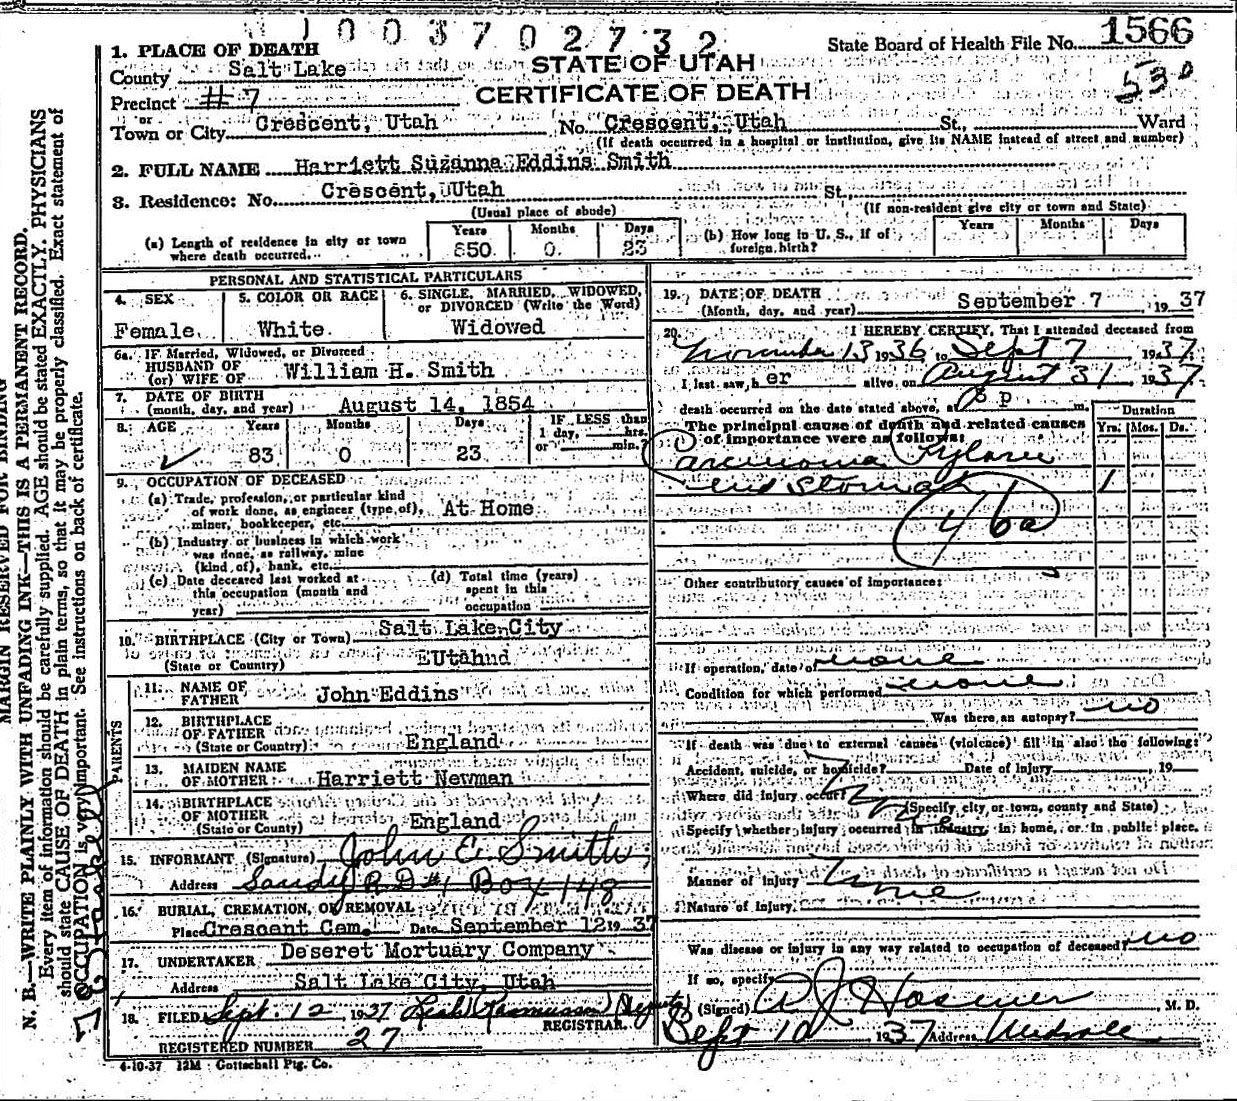 1003702732
State Board of Health File No. 1566
530
STATE OF UTAH
CERTIFICATE OF DEATH
1. PLACE OF DEATH
County Salt Lake
Precinct #7
or
Town or City Crescent, Utah No. Crescent, Utah St., Ward
(If death occurred in a hospital or institution, give its NAME instead of street and number)
2. FULL NAME Harriett Suzanna Eddins Smith
3. Residence: No. Crescent, Utah St.
(Usual place of abode) (If non-resident give city or town and State)
(a) Length of residence in city or town where death occurred. Years 50 Months 0 Days 23
(b) How long in U. S., if of foreign birth? Years Months Days
PERSONAL AND STATISTICAL PARTICULARS
4. SEX Female
5. COLOR OR RACE White
6. SINGLE, MARRIED, WIDOWED, or DIVORCED (Write the Word) Widowed
6a. IF Married, Widowed, or Divorced
HUSBAND OF
(or) WIFE OF William H. Smith
7. DATE OF BIRTH
(month, day, and year) August 14, 1854
8. AGE Years 83 Months 0 Days 23 IF LESS than 1 day, hrs. or min.?
9. OCCUPATION OF DECEASED
(a) Trade, profession, or particular kind
of work done, as engineer (type of), At Home
miner, bookkeeper, etc.
(b) Industry or business in which work
was done, as railway, mine
(kind of), bank, etc.
(c) Date deceased last worked at
this occupation (month and
year)
(d) Total time (years)
spent in this
occupation
10. BIRTHPLACE (City or Town) Salt Lake City
(State or Country) Utah
PARENTS
11. NAME OF
FATHER John Eddins
12. BIRTHPLACE
OF FATHER
(State or Country) England
13. MAIDEN NAME
OF MOTHER Harriett Newman
14. BIRTHPLACE
OF MOTHER
(State or Country) England
15. INFORMANT (Signature) John E. Smith
Address Sandy R.D #1 Box 148
16. BURIAL, CREMATION, OR REMOVAL
Place Crescent Cem. Date September 12 1937
17. UNDERTAKER Deseret Mortuary Company
Address Salt Lake City, Utah
18. FILED Sept. 12, 1937 Leah Rasmussen Deputy
REGISTRAR.
REGISTERED NUMBER 27
4-10-37 12M Gottschall Ptg. Co.
19. DATE OF DEATH
(Month, day, and year) September 7, 1937
20. I HEREBY CERTIFY, That I attended deceased from
November 13 1936 to Sept 7 1937
I last saw her alive on August 31, 1937
death occurred on the date stated above, at p m.
The principal cause of death and related causes
of importance were as follows:
Duration
Yrs. Mos. Ds.
Carcinoma Pyloric
end stomach 1
46a
Other contributory causes of importance:
If operation, date of none
Condition for which performed none
Was there an autopsy? no
If death was due to external causes (violence) fill in also the following:
Accident, suicide, or homicide? Date of injury, 19
Where did injury occur?
(Specify city or town, county and State)
Specify whether injury occurred in industry, in home, or in public place.
Manner of injury
Nature of injury
none
Was disease or injury in any way related to occupation of deceased? no
If so, specify
(Signed) A J Hosmer M. D.
Sept 10 1937 Address Midvale
MARGIN RESERVED FOR BINDING
N. B.—WRITE PLAINLY WITH UNFADING INK—THIS IS A PERMANENT RECORD.
Every item of information should be carefully supplied. AGE should be stated EXACTLY. PHYSICIANS
should state CAUSE OF DEATH in plain terms, so that it may be properly classified. Exact statement of
OCCUPATION is very important. See instructions on back of certificate.